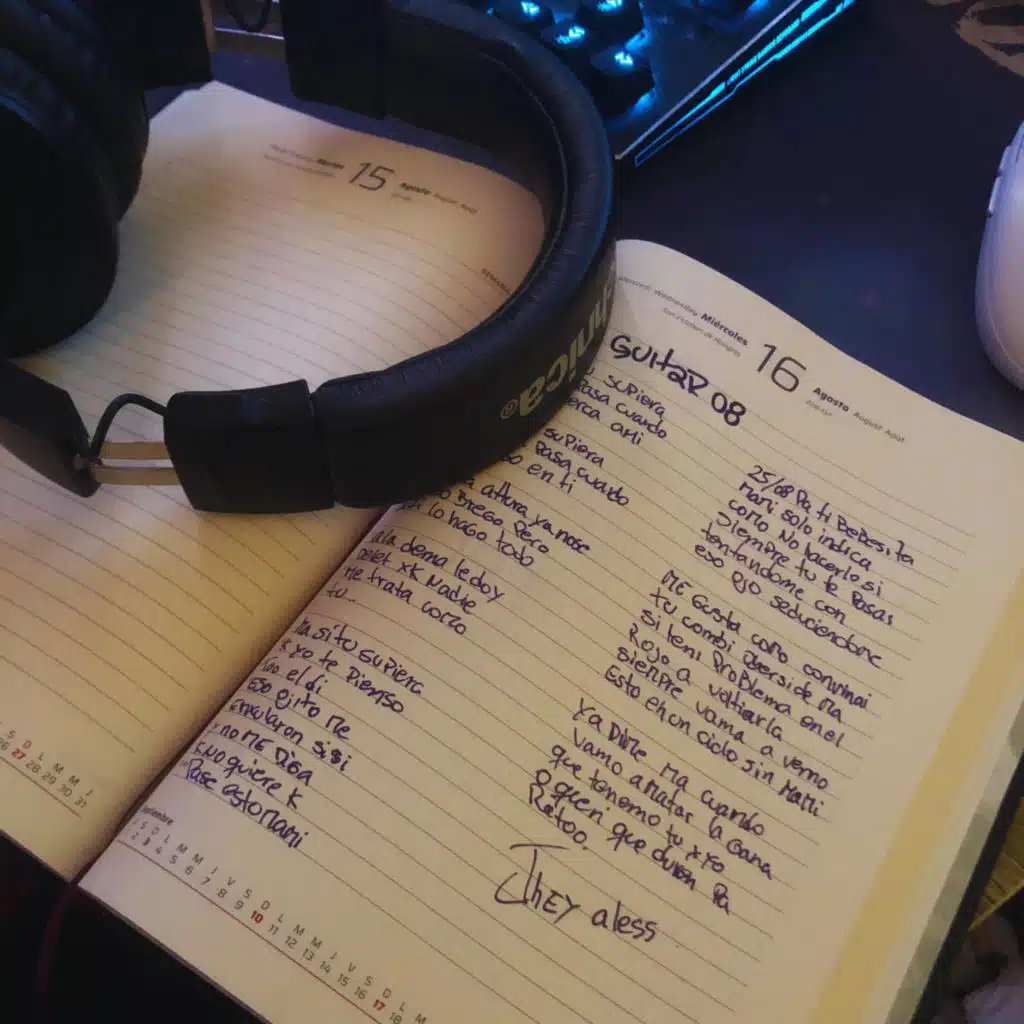 15
Agosto August Août
nica®
Miércoles
16
Agosto August Août
GUitaR 08
supiera
Pasa cuando
erca aMi
supiera
Pasa cuando
en ti
altura ya nose
Brego Pero
lo hago todo
dema le doy
Delet xK Nadie
Me trata coMo
tu..
Ma si tu supiera
K yo te Pienso
to el di
Eso ojito Me
si$i
y no ME DiGA
K NO quiere K
Pase esto Mami
25/08 Pa ti BeBesita
Mami solo indica
coMo No hacerlo si
SieMpre tu te Pasas
tentandoMe con
eso ojo seduciendoMe
ME Gusta coMo convinai
tu combi Diverside Ma
Si teni ProBleMa en el
Rojo a voltiarla
sieMpre vamo a verno
Esto eh un ciclo sin Mami
Ya DiMe Ma cuando
Vamo a Matar la Gana
que teneMo tu x yo
O queri que duren Pa
Ratoo.
JhEY aless
S D L M M J
26 27 28 29 30 31
S D L M M J V S D L M M J V S D L M
2 3 4 5 6 7 8 9 10 11 12 13 14 15 16 17 18 19